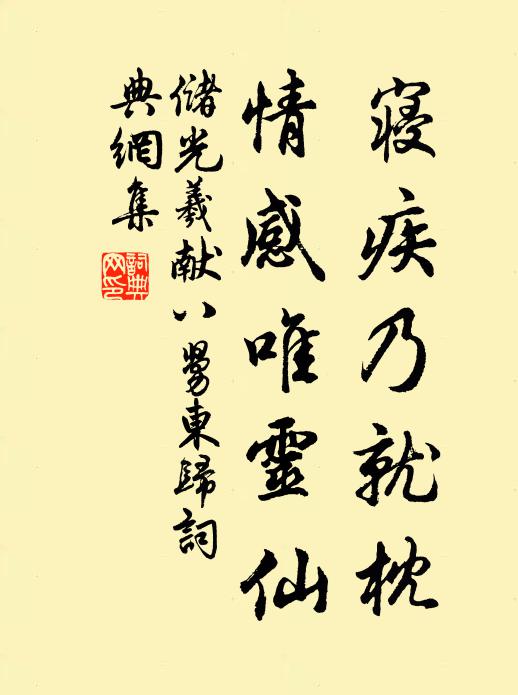 寢疾乃就枕
情感唯靈仙
儲光羲献八舅東歸詞
典網集
詞典
网印